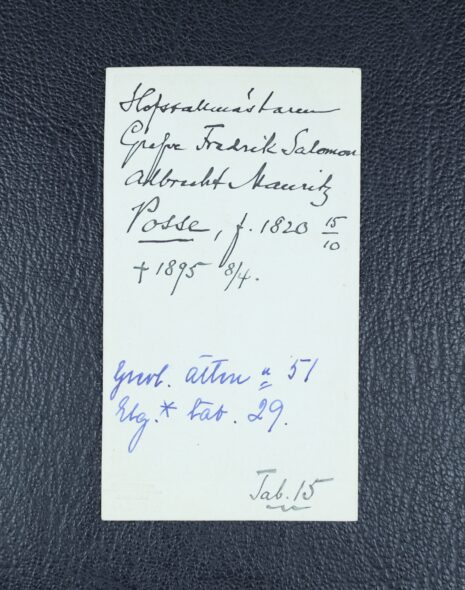 Hofstallmästaren
Grefve Fredrik Salomon
Albrecht Mauritz
Posse, f. 1820 15/10
† 1895 8/4.
Grevl. ätten n 51
Elg.* tab. 29.
Tab. 15